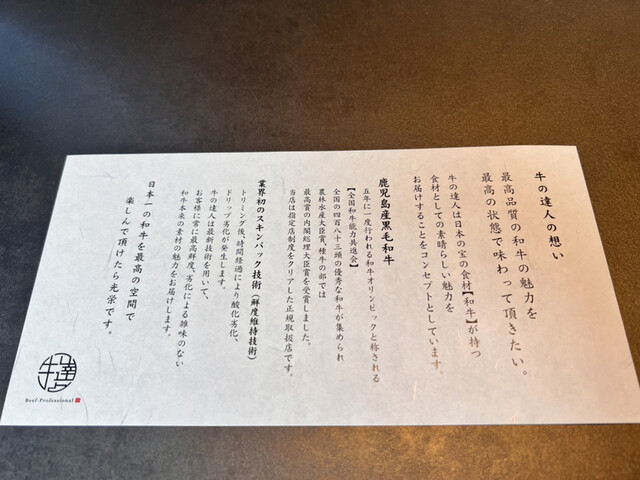 牛の達人の想い
最高品質の和牛の魅力を
最高の状態で味わって頂きたい。
牛の達人は日本の宝の食材【和牛】が持つ
食材としての素晴らしい魅力を
お届けすることをコンセプトとしています。
鹿児島産黒毛和牛
五年に一度行われる和牛オリンピックと称される
【全国和牛能力共進会】
全国の四百八十三頭の優秀な和牛が集められ
農林水産大臣賞、種牛の部では
最高賞の内閣総理大臣賞を受賞しました。
当店は指定店制度をクリアした正規取扱店です。
業界初のスキンパック技術（鮮度維持技術）
トリミング後、時間経過により酸化劣化、
ドリップ劣化が発生します。
牛の達人は最新技術を用いて、
お客様に常に最高鮮度、劣化による雑味のない
和牛本来の素材の魅力をお届けします。
日本一の和牛を最高の空間で
楽しんで頂けたら光栄です。
牛達
Beef-Professional